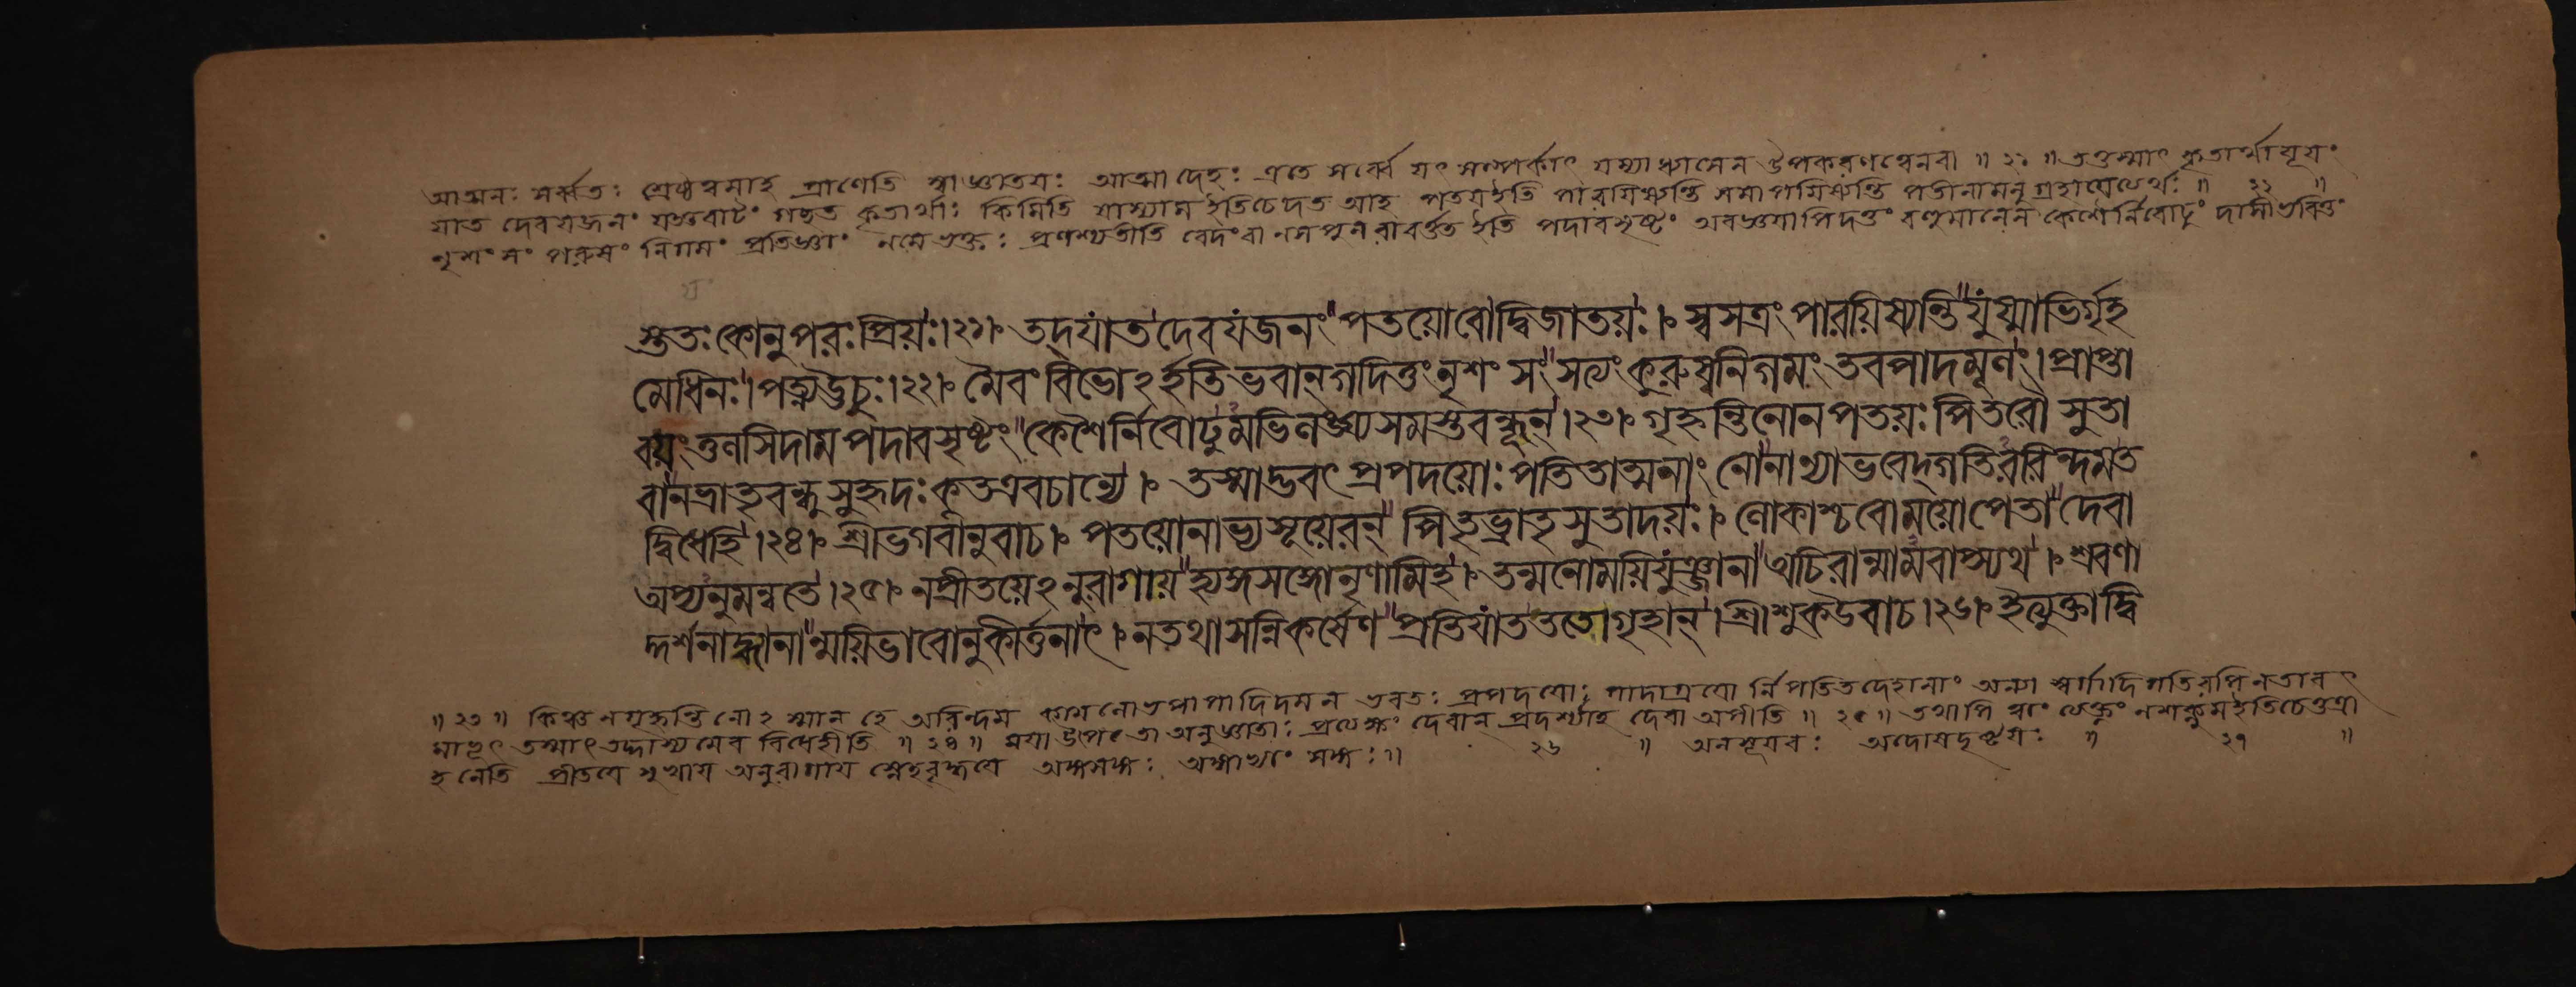 আত্মনঃ সর্ব্বতঃ শ্রেষ্ঠত্বমাহ প্রাণেতি স্বাজ্ঞাতয়ঃ আত্মা দেহঃ এতে সর্ব্বে যৎ সম্পর্কাৎ যস্যাধ্যাসেন উপকরণত্বেনবা ॥ ২১ ॥ তত্তস্মাৎ কৃতার্থাযূয়ং
যাত দেবযজনং যজ্ঞবাটং গচ্ছত কৃতার্থাঃ কিমিতি যাস্যাম ইতিচেদত আহ পতয়ইতি পারয়িষ্যন্তি সমাপয়িষ্যন্তি পত্নীনামনুগ্রহায়েত্যর্থঃ ॥ ২২ ॥
নৃশংসং পরুষং নিগমং প্রতিজ্ঞাং নমেভক্তঃ প্রণশ্যতীতি বেদংবা নসপুনরাবর্ত্তত ইতি পদাবসৃষ্টং অবজ্ঞয়াপিদত্তং কেশৈর্নিবোঢুং দাসীভবিতুং
স্তুতঃ কোনুপরঃপ্রিয়ঃ।২১। তদ্যাত দেবযজনং পতয়োবোদ্বিজাতয়ঃ। স্বসত্রং পারয়িষ্যন্তি যুষ্মাভির্গৃহ
মেধিনঃ। পত্ন্যঊচুঃ।২২। মৈবংবিভোঽর্হতিভবান্গদিতুংনৃশংসং সত্যংকুরুষ্বনিগমংতবপাদমূলং। প্রাপ্তা
বয়ংতুলসিদামপদাবসৃষ্টং কেশৈর্নিবোঢুমভিলঙ্ঘ্যসমস্তবন্ধূন্।২৩। গৃহ্ণন্তিনোনপতয়ঃপিতরৌসুতা
বানভ্রাতৃবন্ধুসুহৃদঃকুতএবচান্যে। তস্মাদ্ভবৎপ্রপদয়োঃপতিতাত্মনাংনোনান্যাভবেদ্গতিররিন্দমত
দ্বিধেহি।২৪। শ্রীভগবানুবাচ। পতয়োনাভ্যসূয়েরন্ পিতৃভ্রাতৃসুতাদয়ঃ। লোকাশ্চবোময়োপেতাদেবা
অপ্যনুমন্বতে।২৫। নপ্রীতয়েঽনুরাগায়হ্যঙ্গসঙ্গোনৃণামিহ। তন্মনোময়িযুঞ্জানাঅচিরান্মামবাপ্স্যথ। শ্রবণা
দ্দর্শনাদ্ধ্যানান্ময়িভাবোনুকীর্ত্তনাৎ। নতথাসন্নিকর্ষেণপ্রতিযাতততোগৃহান্। শ্রীশুকউবাচ।২৬। ইত্যুক্তাদ্বি
॥ ২৩ ॥ কিঞ্চ নগৃহ্ণন্তি নোঽস্মান্ হে অরিন্দম ভবতঃ প্রপদয়োঃ পাদাগ্রয়ো র্নিপতিতদেহানাং অন্যা স্বর্গাদিগতিরপি নতাবৎ
মাভূৎ তস্মাৎতদ্দাস্যমেব বিধেহীতি ॥ ২৪ ॥ ময়া উপেতা অনুজ্ঞাতাঃ প্রত্যক্ষং দেবান্ প্রদর্শ্যাহ দেবা অপীতি ॥ ২৫ ॥ তথাপি ত্বাং ত্যক্তুং নশক্নুমইতিচেত্তত্রা
হ নেতি প্রীতয়ে সুখায় অনুরাগায় স্নেহবৃদ্ধয়ে অঙ্গসঙ্গঃ অঙ্গাভ্যাং সঙ্গঃ ॥ ২৬ ॥ অনসূয়বঃ অদোষদৃষ্টয়ঃ ॥ ২৭ ॥